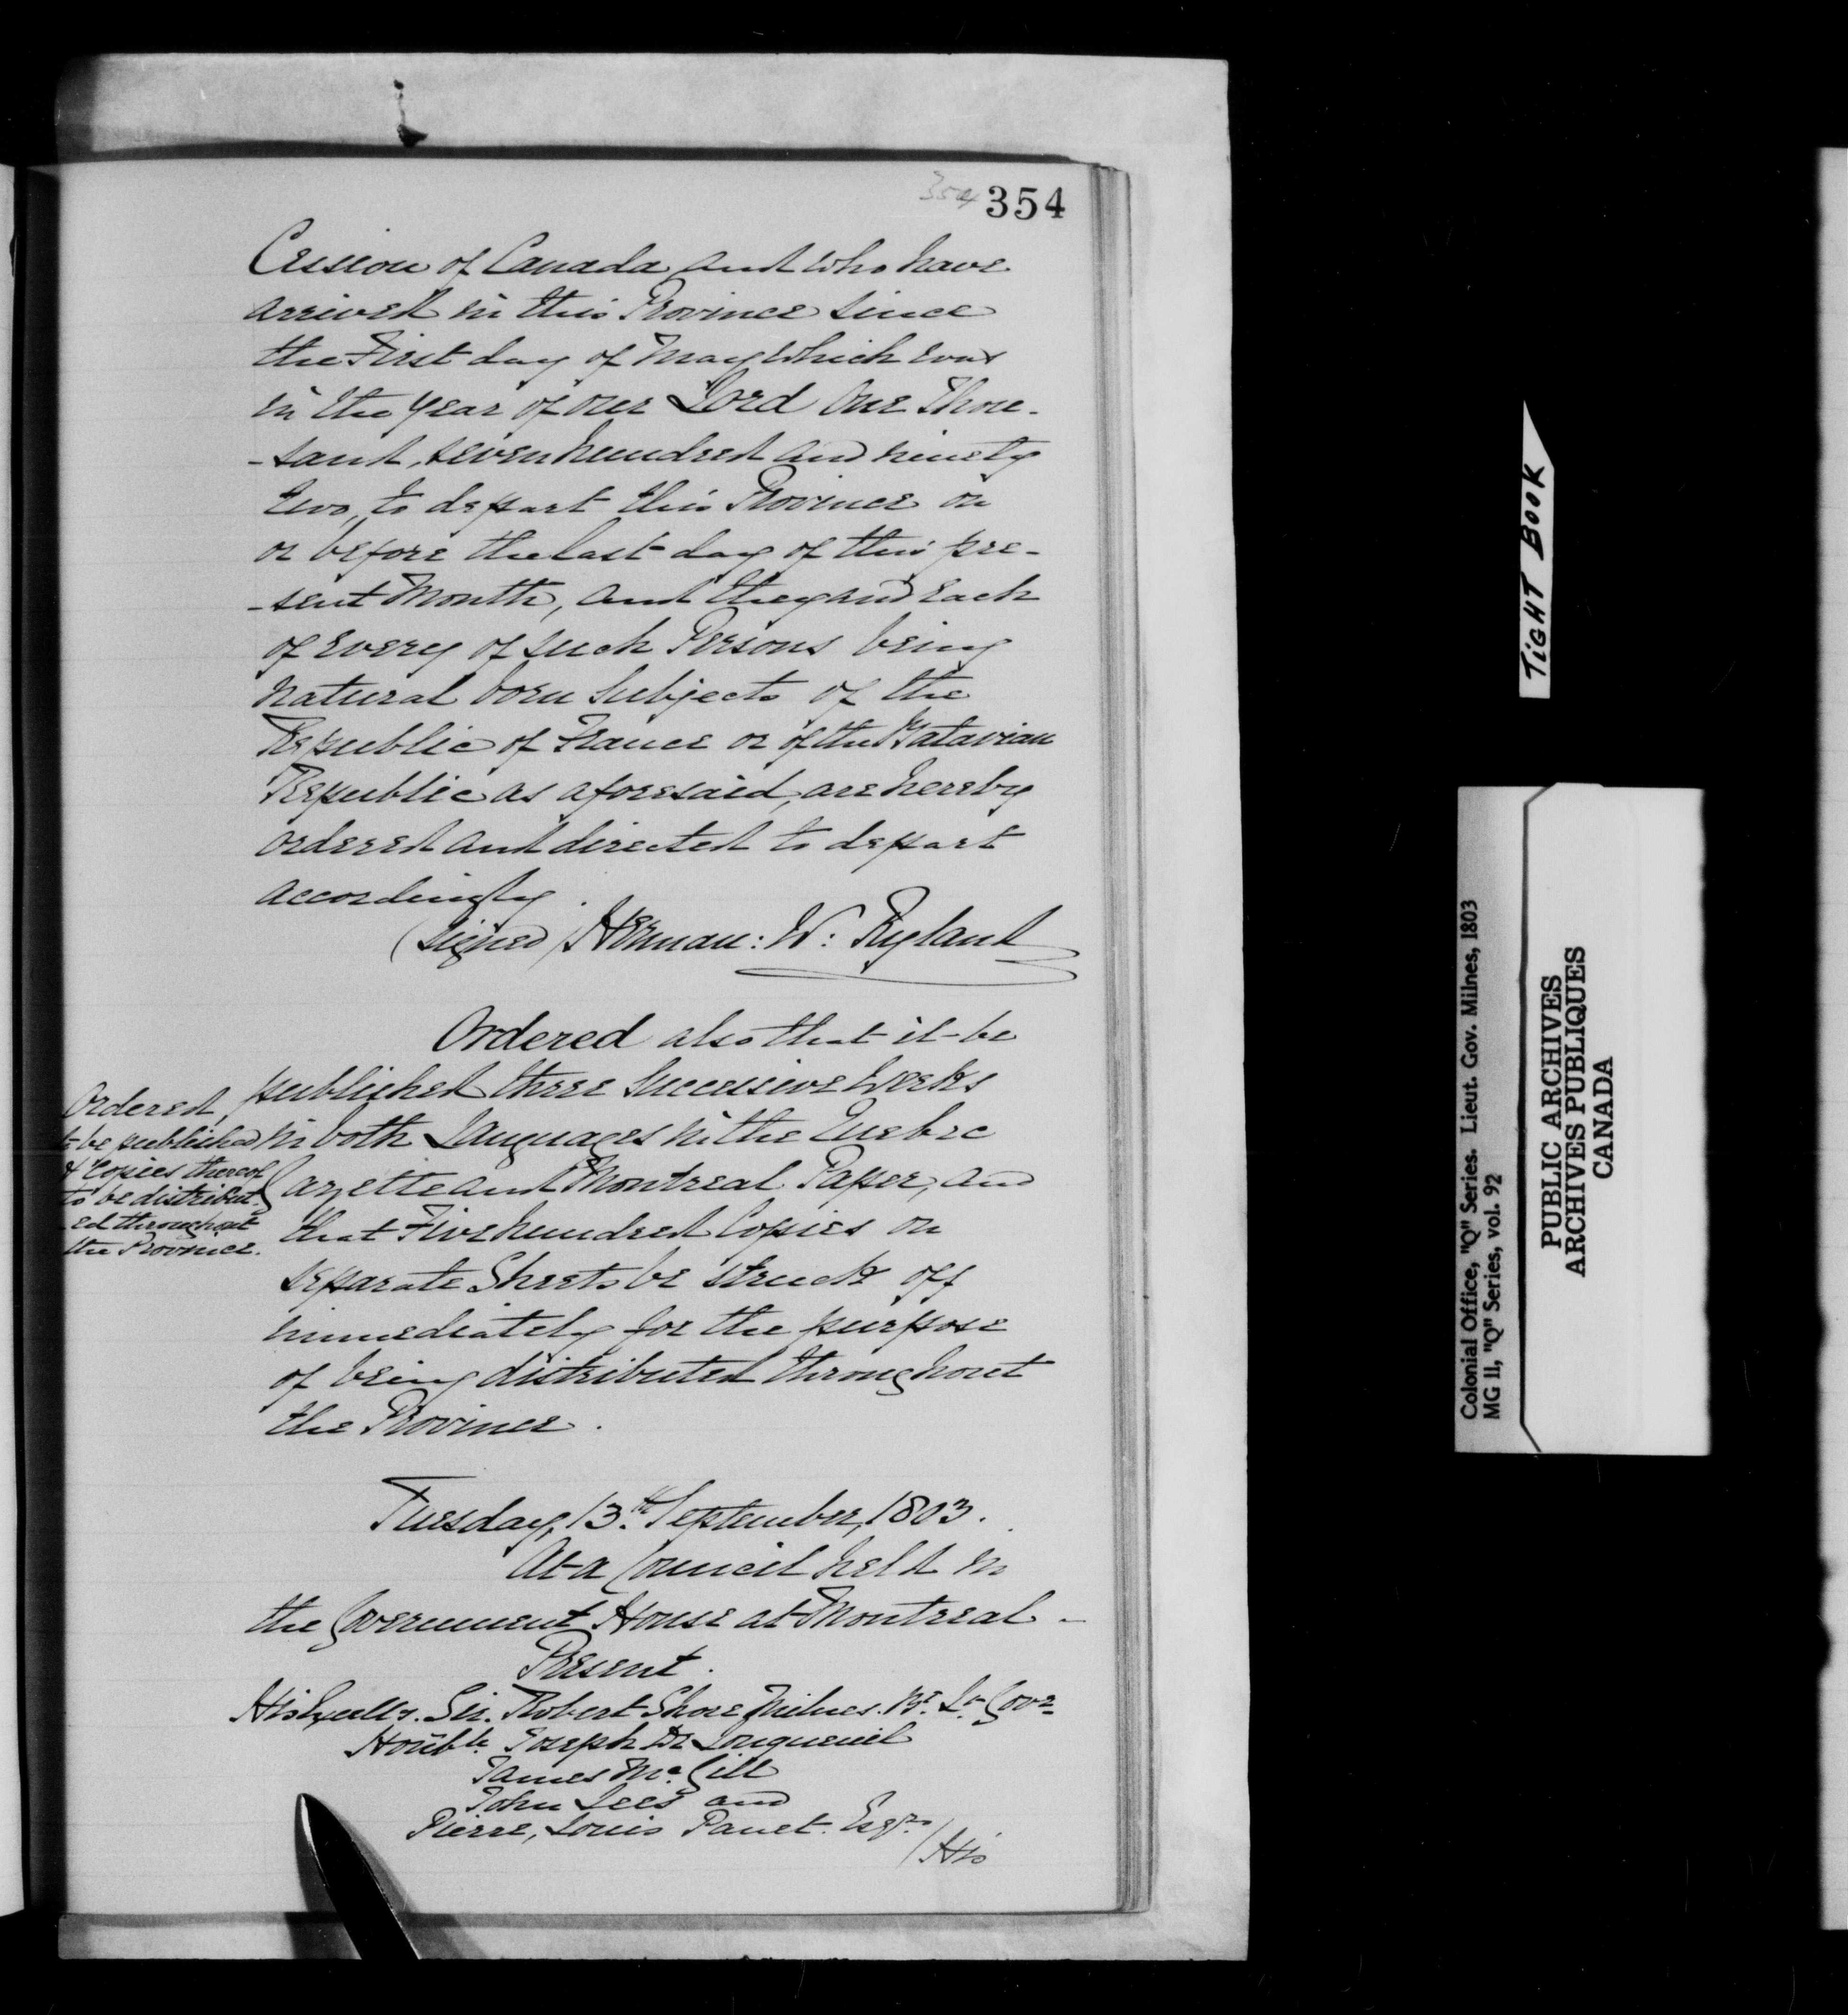 354 354
Cession of Canada and who have
arrived in this Province since
the First day of May which was
in the Year of our Lord One Thou-
-sand, seven hundred and ninety
two, to depart this Province on
or before the last day of this pre-
-sent Month, and they and each
of every of such Persons being
natural born subjects of the
Republic of France or of the Batavian
Republic as aforesaid, are hereby
ordered and directed to depart
accordingly.
(Signed) Herman: W: Ryland
Ordered also that it be
published three successive Weeks
in both Languages in the Quebec
Gazette and Montreal Paper, and
that Five hundred Copies on
separate Sheets be struck off
immediately for the purpose
of being distributed throughout
the Province.
Ordered
to be published
& Copies thereof
to be distribut-
-ed throughout
the Province.
Tuesday, 13th September, 1803.
At a Council held in
the Government House at Montreal -
Present.
His Excelly. Sir. Robert Shore Milnes. Bt. Lt. Govr.
Honble. Joseph De Longueuil
James McGill
John Lees and
Pierre, Louis Panet. Esqrs.
/His
TIGHT BOOK
Colonial Office, "Q" Series. Lieut. Gov. Milnes, 1803
MG 11, "Q" Series, vol. 92
PUBLIC ARCHIVES
ARCHIVES PUBLIQUES
CANADA